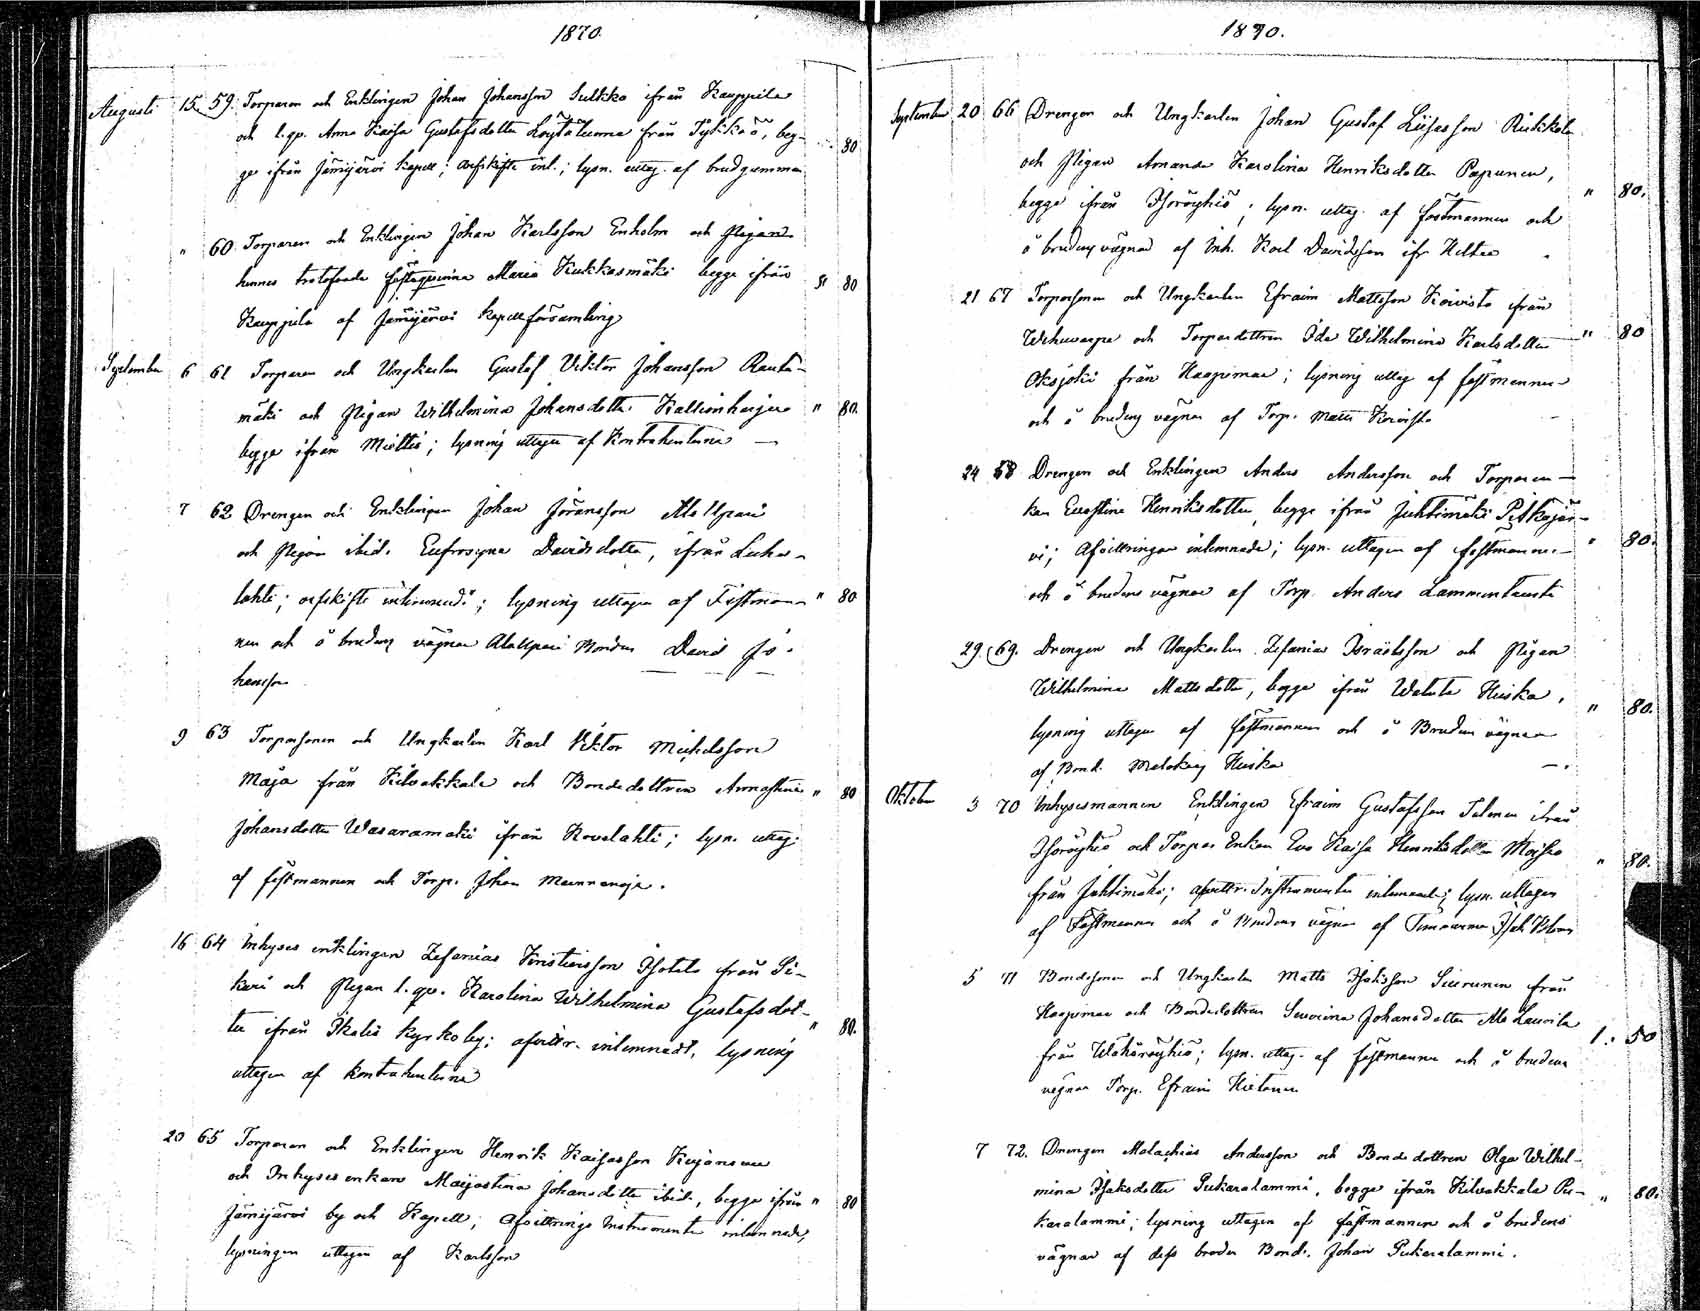 1870.
Augusti 15. 59. Torparen och Enklingen Johan Johansson Sulkko ifrån Kauppila
och l. qv. Anna Kaisa Gustafsdotter från Tykköö, beg-
ge ifrån Jämijärvi Kapell; arfskifte inl.; lysn. uttag. af brudgummen 80
" 60. Torparen och Enklingen Johan Karlsson Enholm och Pigan
hennes trolofvade Maria Kukkasmäki begge ifrån 80
Kauppila af Jämijärvi Kapellförsamling
September 6 61 Torparen och Ungkarlen Gustaf Viktor Johansson Rauta-
mäki och Pigan Wilhelmina Johansdotter Kallionharju " 80.
begge ifrån Miettis; lysning uttagen af Kontrahenterne —
7 62 Drengen och Enklingen Johan Jöransson Ala Upari
och Pigan ibid. Eufrosyna Davidsdotter, ifrån Luha-
lahti; arfskifte inlemnadt; lysning uttagen af Fästman- " 80
nen och å brudens vägnar Ala Upari Bonden David Jo-
hansson
9 63 Torparsonen och Ungkarlen Karl Viktor Michelsson
Maja från Kilvakkala och Bondedottren Annastina " 80
Johansdotter Wasaramäki ifrån Kovelahti; lysn. uttag.
af fästmannen och Torp. Johan
16 64 Inhyses enklingen Zefanias Kristiersson från Si-
kuri och Pigan l. qv. Karolina Wilhelmina Gustafsdot-
ter ifrån Ikalis Kyrkoby; afvittr. inlemnadt, lysning " 80.
uttagen af Kontrahenterne
20 65 Torparen och Enklingen Henrik Kaisasson Kujansuu
och Inhyses enkan Maijastina Johansdotter ibid., begge ifrån " 80
Jämijärvi by och Kapell; Afvittrings Instrumenter inlemnade,
lysningen uttagen af Karlsson
1870.
September 20 66 Drengen och Ungkarlen Johan Gustaf Liisasson Riikkola
och Pigan Amanda Karolina Henriksdotter Papunen,
begge ifrån Isoröyhiö; lysn. uttag. af fästmannen och " 80.
å brudens vägnar af Inh. Karl Davidsson ifr.
21 67 Torparsonen och Ungkarlen Efraim Mattsson Koivisto ifrån
Wehuvarpe och Torpardottren Ida Wilhelmina Karlsdotter " 80
Oksjoki från Haapimaa; lysning uttag af fästmannen
och å brudens vägnar af Torp. Matts Koivisto
24 68 Drengen och Enklingen Anders Andersson och Torparen-
kan Evastina Henriksdotter, begge ifrån Juhtimäki Pitkäjär-
vi; Afvittringar inlemnade; lysn. uttagen af fästmannen " 80.
och å brudens vägnar af Torp. Anders Lammentausta
29. 69. Drengen och Ungkarlen Zefanias Israelsson och Pigan
Wilhelmina Mattsdotter, begge ifrån Watula Heiska,
lysning uttagen af fästmannen och å Brudens vägnar " 80.
af Bond. Malakias Heiska
Oktober 3 70 Inhysesmannen Enklingen Efraim Gustafsson Salonen ifrån
Isoröyhiö och Torpar Enkan Eva Kaisa Henriksdotter Moisio
från Juhtimäki; afvittr. Instrumenter inlemnade; lysn. uttagen " 80.
af Fästmannen och å Brudens vägnar af Isak
5 71 Bondesonen och Ungkarlen Matts Isaksson Siurunen från
Haapimaa och Bondedottren Serafina Johansdotter Ala Laurila
från Wähäröyhiö; lysn. uttag. af fästmannen och å brudens 1. 50
vägnar Torp. Efraim Hietanen
7 72. Drengen Malachias Andersson och Bondedottren Olga Wilhel-
mina Isaksdotter Pukaralammi, begge ifrån Kilvakkala Pu- " 80.
karalammi; lysning uttagen af fästmannen och å brudens
vägnar af dess broder Bond. Johan Pukaralammi.